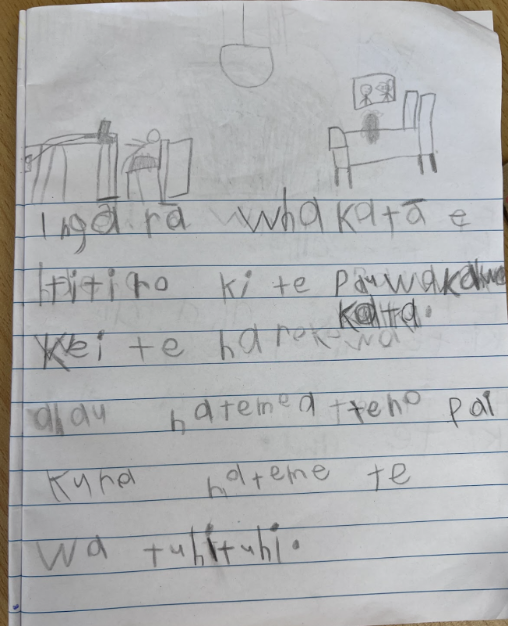 I ngā rā whakatā e
titiro ki te pouwaka
kata.
Kei te harekewa
ahau nateme a tteno pai
Kura nateme te
wa tuhituhi.